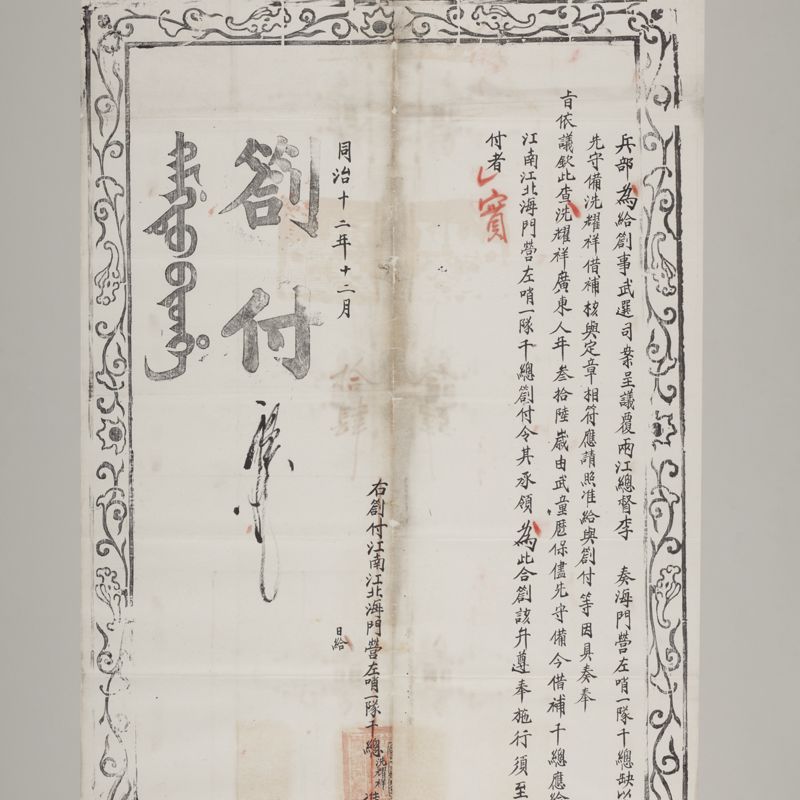 兵部為給劄事武選司案呈議覆兩江總督李 奏海門營左哨一隊千總缺以
先守備洗耀祥借補核與定章相符應請照准給與劄付等因具奏奉
旨依議欽此查洗耀祥廣東人年叁拾陸歲由武童歷保儘先守備今借補千總應給
江南江北海門營左哨一隊千總劄付令其承領為此合劄該弁遵奉施行須至
付者
實
右劄付江南江北海門營左哨一隊千總洗耀祥
同治十二年十二月 日給
劄付